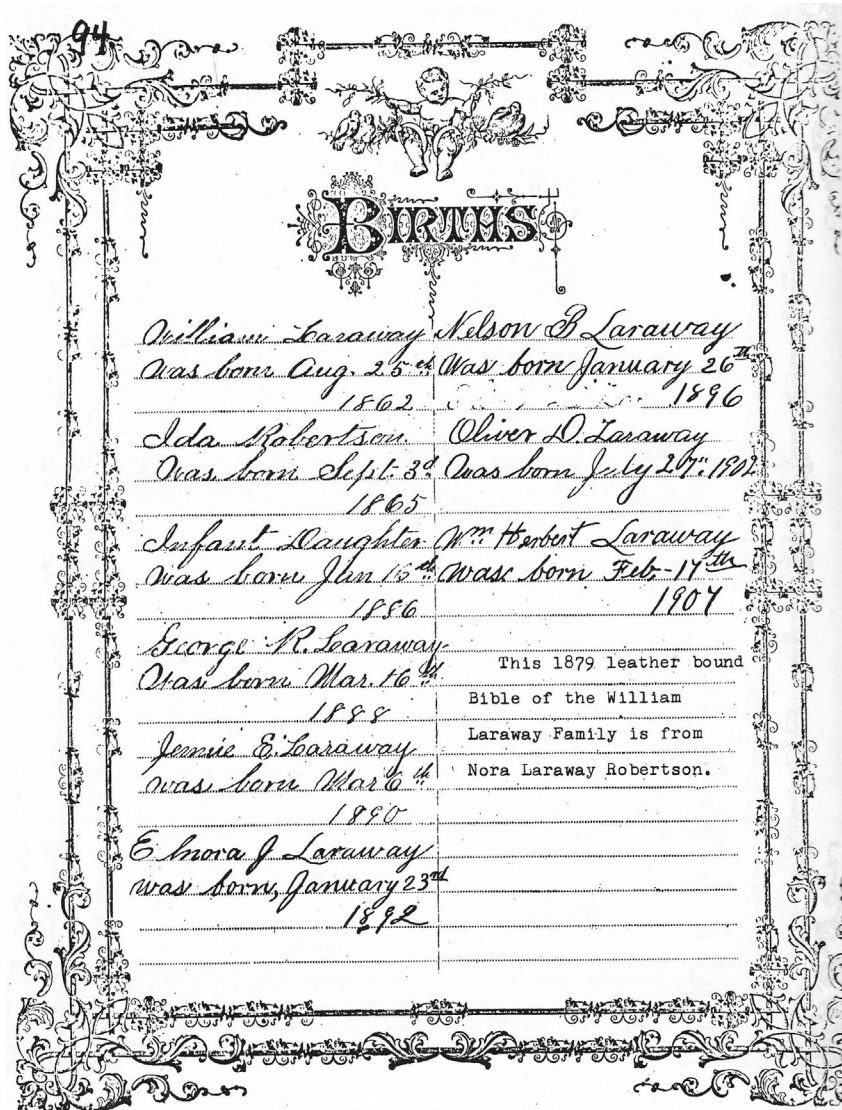 94
BIRTHS
William Laraway
Was born Aug. 25th
1862
Ida Robertson.
Was born Sept. 3d
1865
Infant Daughter
was born Jan 15th
1886
George R. Laraway
Was born Mar. 16th
1888
Jennie E. Laraway
was born Mar 6th
1890
Elnora J Laraway
was born, January 23rd
1892
Nelson B Laraway
Was born January 26th
1896
Oliver D. Laraway
Was born July 27th. 1902
Wm Herbert Laraway
was born Feb - 17th
1907
This 1879 leather bound
Bible of the William
Laraway Family is from
Nora Laraway Robertson.